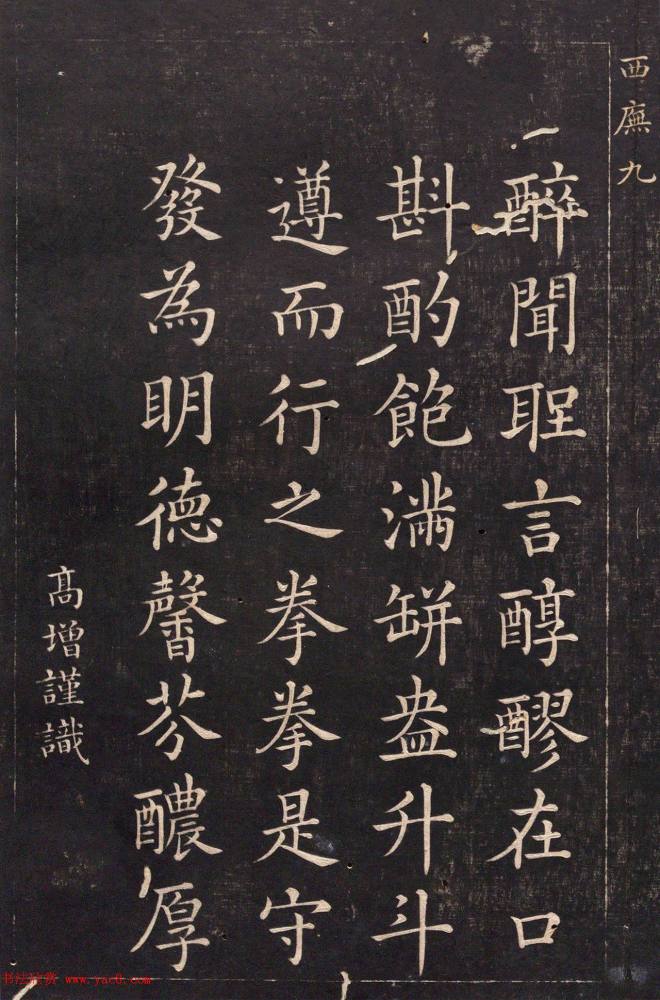 西廡九
醉聞聖言醇醪在口
斟酌飽滿缾盎升斗
遵而行之拳拳是守
發為明德馨芬醲厚
高增謹識
书法欣赏 www.yac8.com